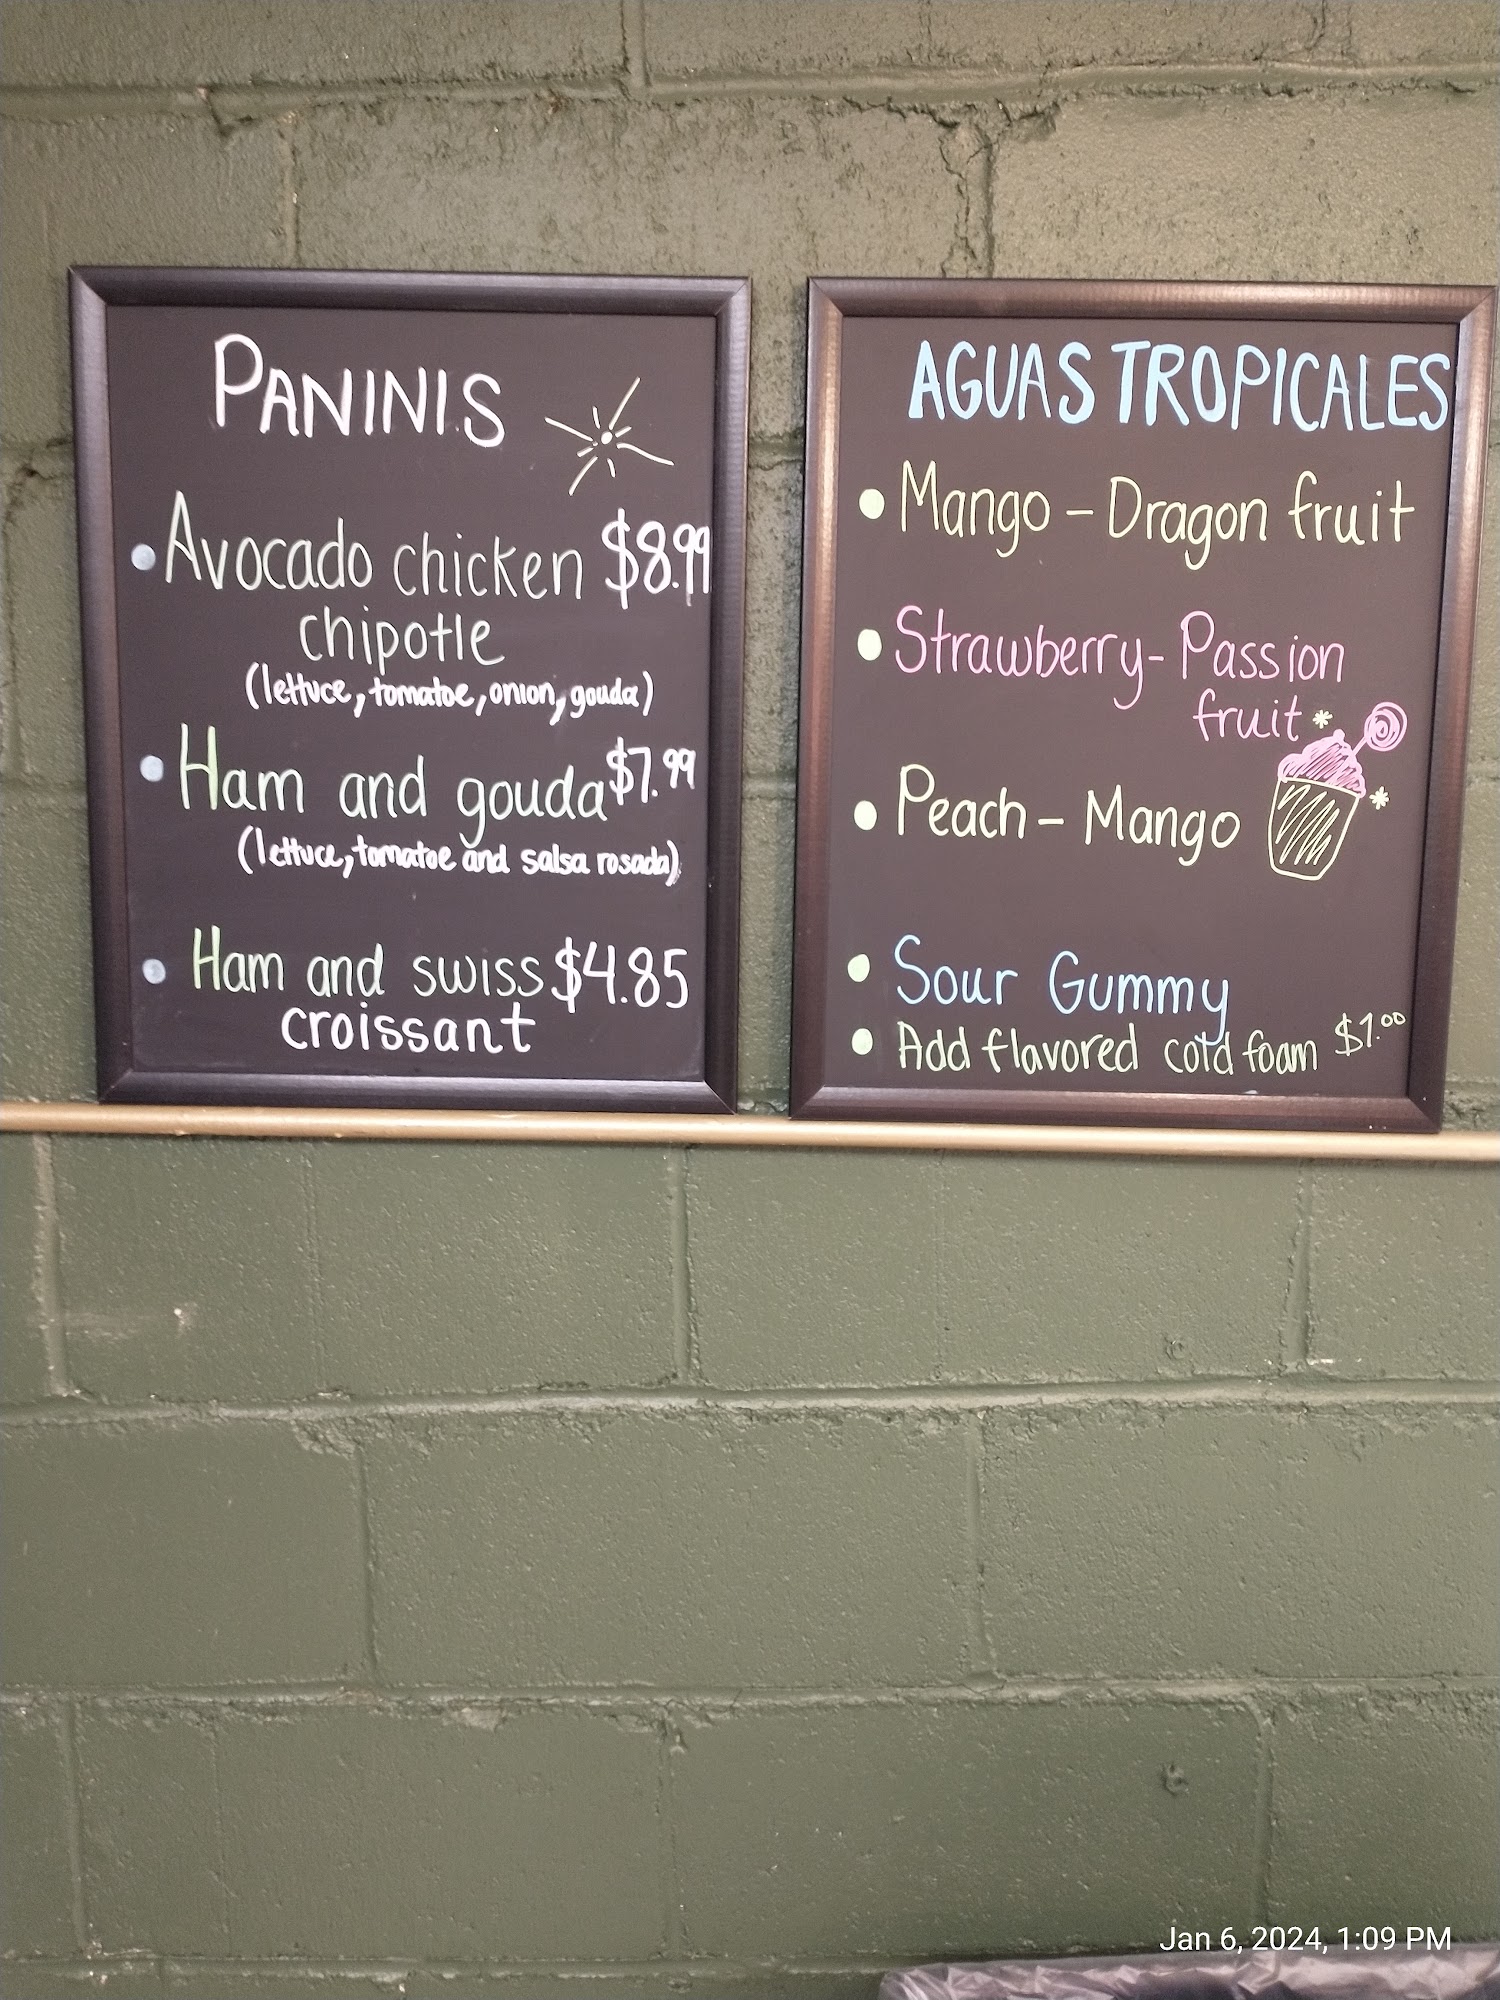 PANINIS
Avocado chicken $8.99
chipotle
(lettuce, tomatoe, onion, gouda)
Ham and gouda $7.99
(lettuce, tomatoe and salsa rosada)
Ham and swiss $4.85
croissant
AGUAS TROPICALES
Mango - Dragon fruit
Strawberry - Passion
fruit
Peach - Mango
Sour Gummy
Add flavored cold foam $1.00
Jan 6, 2024, 1:09 PM